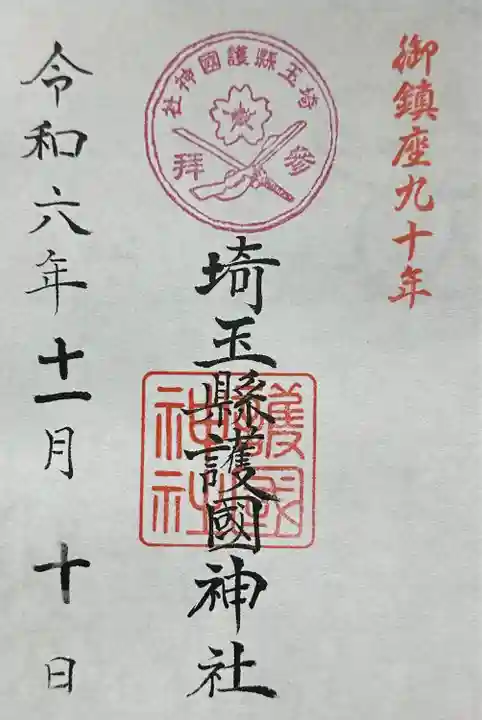 御鎮座九十年
埼玉縣護國神社
參拝
埼玉縣護國神社
護國
神社
令和六年十一月十日